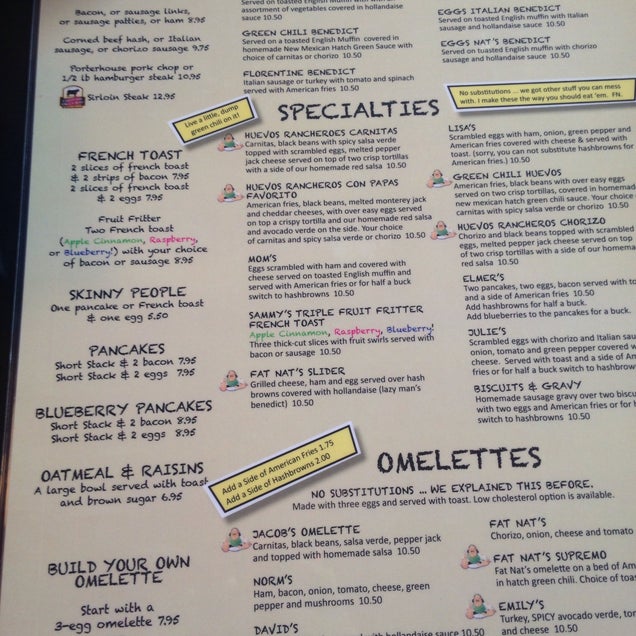 Bacon, or sausage links,
or sausage patties, or ham 8.95
Corned beef hash, or Italian
sausage, or chorizo sausage 9.75
Porterhouse pork chop or
1/2 lb hamburger steak 10.95
Sirloin Steak 12.95
FRENCH TOAST
2 slices of french toast
& 2 strips of bacon 7.95
2 slices of french toast
& 2 eggs 7.95
Fruit Fritter
Two French toast
(Apple Cinnamon, Raspberry,
or Blueberry!) with your choice
of bacon or sausage 8.95
SKINNY PEOPLE
One pancake or French toast
& one egg 5.50
PANCAKES
Short Stack & 2 bacon 7.95
Short Stack & 2 eggs 7.95
BLUEBERRY PANCAKES
Short Stack & 2 bacon 8.95
Short Stack & 2 eggs 8.95
OATMEAL & RAISINS
A large bowl served with toast
and brown sugar 6.95
BUILD YOUR OWN
OMELETTE
Start with a
3-egg omelette 7.95
assortment of vegetables covered in hollandaise
sauce 10.50
GREEN CHILI BENEDICT
Served on a toasted English muffin covered in
homemade New Mexican Hatch Green Sauce with
choice of carnitas or chorizo 10.50
FLORENTINE BENEDICT
Italian sausage or turkey with tomato and spinach
served with American fries 10.50
EGGS ITALIAN BENEDICT
Served on toasted English muffin with Italian
sausage and hollandaise sauce 10.50
EGGS NAT'S BENEDICT
Served on toasted English muffin with chorizo
sausage and hollandaise sauce 10.50
Live a little, dump
green chili on it!
SPECIALTIES
No substitutions ... we got other stuff you can mess
with. I make these the way you should eat 'em. FN.
HUEVOS RANCHEROES CARNITAS
Carnitas, black beans with spicy salsa verde
topped with scrambled eggs, melted pepper
jack cheese served on top of two crisp tortillas
with a side of our homemade red salsa 10.50
HUEVOS RANCHEROS CON PAPAS
FAVORITO
American fries, black beans, melted monterey jack
and cheddar cheeses, with over easy eggs served
on top a crispy tortilla and our homemade red salsa
and avocado verde on the side. Your choice
of carnitas and spicy salsa verde or chorizo 10.50
MOM'S
Eggs scrambled with ham and covered with
cheese served on toasted English muffin and
served with American fries or for half a buck
switch to hashbrowns 10.50
SAMMY'S TRIPLE FRUIT FRITTER
FRENCH TOAST
Apple Cinnamon, Raspberry, Blueberry!
Three thick-cut slices with fruit swirls served with
bacon or sausage 10.50
FAT NAT'S SLIDER
Grilled cheese, ham and egg served over hash
browns covered with hollandaise (lazy man's
benedict) 10.50
LISA'S
Scrambled eggs with ham, onion, green pepper and
American fries covered with cheese & served with
toast. (sorry, you can not substitute hashbrowns for
American fries.) 10.50
GREEN CHILI HUEVOS
American fries, black beans with over easy eggs
served on two crisp tortillas, covered in homemade
new mexican hatch green chili sauce. Your choice
carnitas with spicy salsa verde or chorizo 10.50
HUEVOS RANCHEROS CHORIZO
Chorizo and black beans topped with scrambled
eggs, melted pepper jack cheese served on top
of two crisp tortillas with a side of our homemade
red salsa 10.50
ELMER'S
Two pancakes, two eggs, bacon served with to
and a side of American fries 10.50
Add hashbrowns for half a buck.
Add blueberries to the pancakes for a buck.
JULIE'S
Scrambled eggs with chorizo and Italian sau
onion, tomato and green pepper covered w
cheese. Served with toast and a side of Am
fries or for half a buck switch to hashbrow
BISCUITS & GRAVY
Homemade sausage gravy over two biscu
with two eggs and American fries or for h
switch to hashbrowns 10.50
Add a Side of American Fries 1.75
Add a Side of Hashbrowns 2.00
OMELETTES
NO SUBSTITUTIONS ... WE EXPLAINED THIS BEFORE.
Made with three eggs and served with toast. Low cholesterol option is available.
JACOB'S OMELETTE
Carnitas, black beans, salsa verde, pepper jack
and topped with homemade salsa 10.50
NORM'S
Ham, bacon, onion, tomato, cheese, green
pepper and mushrooms 10.50
DAVID'S
with hollandaise sauce 10.50
FAT NAT'S
Chorizo, onion, cheese and tomato
FAT NAT'S SUPREMO
Fat Nat's omelette on a bed of Am
in hatch green chili. Choice of toa
EMILY'S
Turkey, SPICY avocado verde, tom
and cheese 10.50